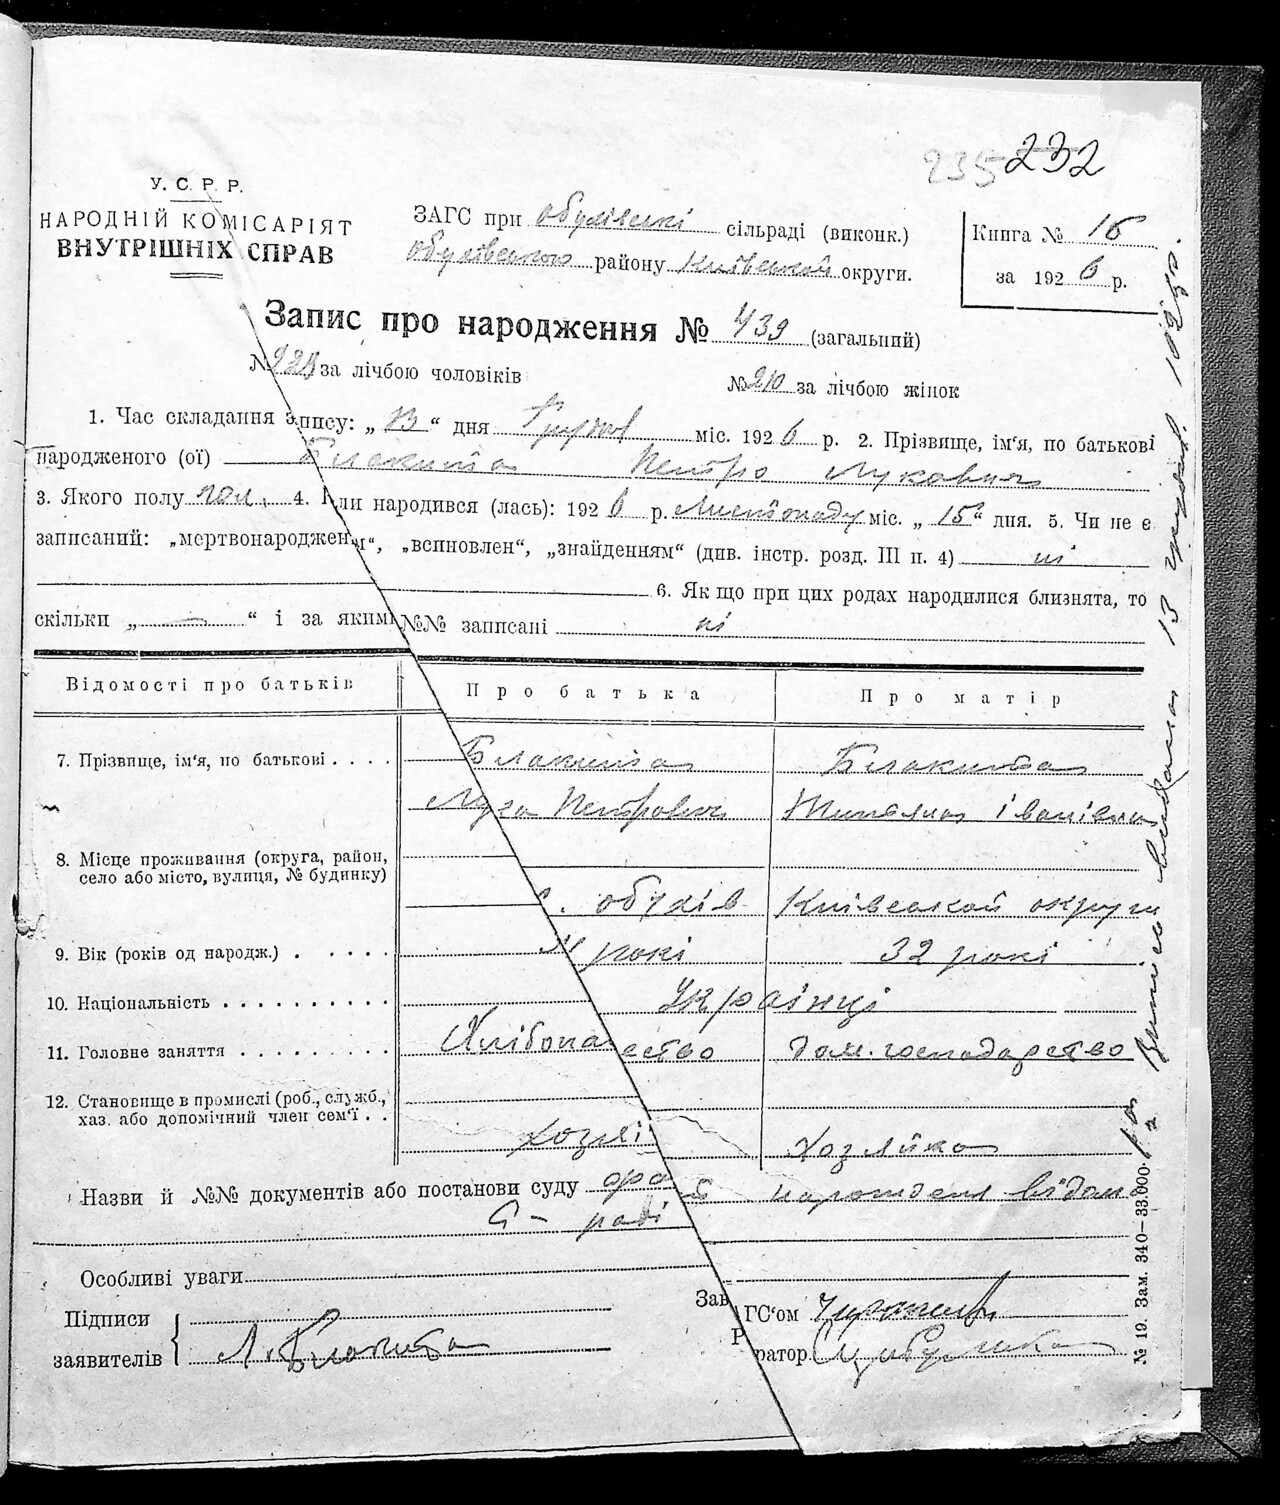 235 232
У. С. Р. Р.
НАРОДНІЙ КОМІСАРІЯТ
ВНУТРІШНІХ СПРАВ
ЗАГС при Обухівські сільраді (виконк.)
Обухівського району Київської округи.
Книга № 16
за 1926 р.
Запис про народження № 439 (загальний)
№ 229 за лічбою чоловіків
№ 210 за лічбою жінок
1. Час складання запису: „13“ дня Грудня міс. 1926 р. 2. Прізвище, ім'я, по батькові
народженого (ої) Блакита Петро Лукович
3. Якого полу чол. 4. Коли народився (лась): 1926 р. Листопаду міс. „15“ дня. 5. Чи не є
записаний: „мертвонародженим“, „всиновлен“, „знайденням“ (див. інстр. розд. III п. 4) ні
6. Як що при цих родах народилися близнята, то
скільки „—“ і за якими №№ записані ні
Відомості про батьків
Про батька
Про матір
7. Прізвище, ім'я, по батькові . . . .
Блакита Блакита
Лука Петрович Тетяна Іванівна
8. Місце проживання (округа, район,
село або місто, вулиця, № будинку)
с. Обухів Київської округи
9. Вік (років од народж.) . . . . . рокі 32 рокі
10. Національність . . . . . . . . . . Українці
11. Головне заняття . . . . . . . . . Хлібопашество дом. господарство
12. Становище в промислі (роб., служб.,
хаз. або допомічний член сем'ї . .
Хозяін Хозяйка
Назви й №№ документів або постанови суду
Особливі уваги
Підписи
заявителів
Л. Блакита
Зав ГС'ом
Р ратор
№ 19. Зам. 340—33.000.